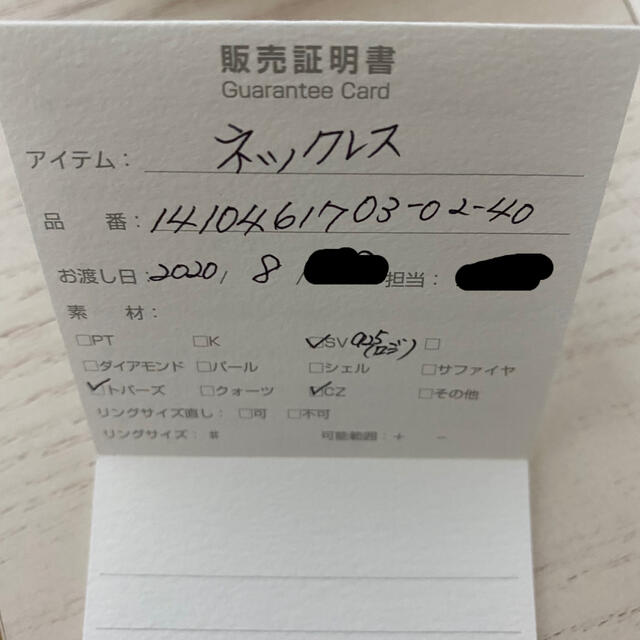 販売証明書
Guarantee Card
アイテム: ネックレス
品 番: 1410461703-02-40
お渡し日: 2020/ 8 / 担当:
素 材:
□PT □K ☑SV 925 (ロジ) □
□ダイアモンド □パール □シェル □サファイヤ
☑トパーズ □クォーツ ☑CZ □その他
リングサイズ直し: □可 □不可
リングサイズ: # 可能範囲: + −